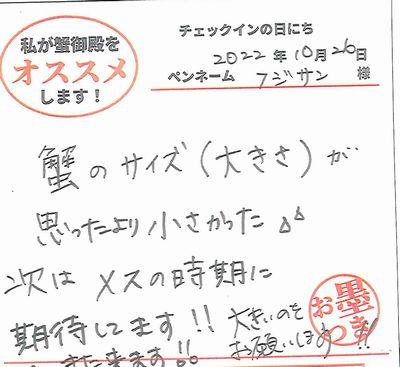 私が蟹御殿を
オススメ
します！
チェックインの日にち
2022年10月26日
ペンネーム フジサン 様
蟹のサイズ(大きさ)が
思ったより小さかった
次はメスの時期に
期待してます!! 大きいのを
お願いします!!
また来ます!!
お墨つき